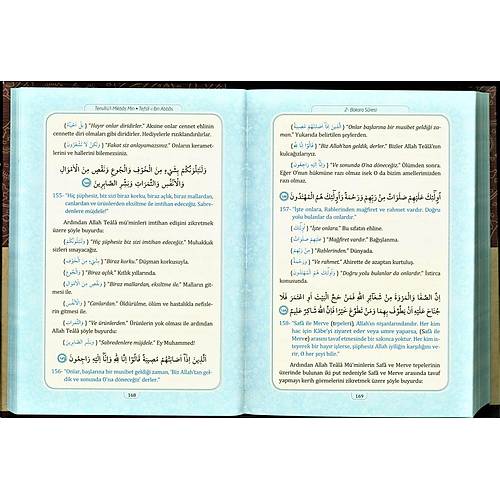 Tenvîru'l-Mikbâs Min • Tefsîr-i İbn Abbâs
(بَلْ اَحْيَٓاءٌ) "Hayır onlar diridirler." Aksine onlar cennet ehlinin
cennette diri olmaları gibi diridirler. Hediyelerle rızıklandırılırlar.
(وَلٰكِنْ لَا تَشْعُرُونَ) "Fakat siz anlayamazsınız." Onların keramet-
lerini ve hallerini bilemezsiniz.
وَلَنَبْلُوَنَّكُمْ بِشَيْءٍ مِنَ الْخَوْفِ وَالْجُوعِ وَنَقْصٍ مِنَ الْاَمْوَالِ
وَالْاَنْفُسِ وَالثَّمَرَاتِ وَبَشِّرِ الصَّابِرِينَ
155- "Hiç şüphesiz, biz sizi biraz korku, biraz açlık, biraz mallardan,
canlardan ve ürünlerden eksiltme ile imtihan edeceğiz. Sabre-
denlere müjdele!"
Ardından Allah Teâlâ mü'minleri imtihan edişini zikretmek
üzere şöyle buyurdu:
(وَلَنَبْلُوَنَّكُمْ) "Hiç şüphesiz biz sizi imtihan edeceğiz." Muhakkak
sizleri sınayacağız.
(بِشَيْءٍ مِنَ الْخَوْفِ) "Biraz korku." Düşman korkusuyla.
(وَالْجُوعِ) "Biraz açlık." Kıtlık yıllarında.
(وَنَقْصٍ مِنَ الْاَمْوَالِ) "Biraz mallardan, eksiltme ile." Malların git-
mesi ile.
(وَالْاَنْفُسِ) "Canlardan." Öldürülme, ölüm ve hastalıkla nefisle-
rin gitmesi ile.
(وَالثَّمَرَاتِ) "Ve ürünlerden." Ürünlerin yok olması ile ardından
Allah Teâlâ şöyle buyurdu:
(وَبَشِّرِ الصَّابِرِينَ) "Sabredenlere müjdele." Ey Muhammed!
اَلَّذِينَ اِذَٓا اَصَابَتْهُمْ مُصِيبَةٌ قَالُٓوا اِنَّا لِلّٰهِ وَاِنَّٓا اِلَيْهِ رَاجِعُونَ
156- "Onlar, başlarına bir musibet geldiği zaman, 'Biz Allah'tan gel-
dik ve sonunda O'na döneceğiz' derler."
168
2- Bakara Sûresi
(اَلَّذِينَ اِذَٓا اَصَابَتْهُمْ مُصِيبَةٌ) "Onlar başlarına bir musibet geldiği za-
man." Yukarıda belirtilen şeylerden.
(قَالُٓوا اِنَّا لِلّٰهِ) "Biz Allah'tan geldik, derler." Bizler Allah Teâlâ'nın
kulcağızlarıyız.
(وَاِنَّٓا اِلَيْهِ رَاجِعُونَ) "Ve sonunda O'na döneceğiz." Ölümden sonra.
Eğer O'nun hükmüne razı olmaz isek O da bizim amellerimizden
razı olmaz.
اُو۬لٰٓئِكَ عَلَيْهِمْ صَلَوَاتٌ مِنْ رَبِّهِمْ وَرَحْمَةٌ وَاُو۬لٰٓئِكَ هُمُ الْمُهْتَدُونَ
157- "İşte onlara, Rablerinden mağfiret ve rahmet vardır. Doğru
yolu bulanlar da onlardır."
(اُو۬لٰٓئِكَ) "İşte onlara." Bu sıfatın ehline.
(عَلَيْهِمْ صَلَوَاتٌ) "Mağfiret vardır." Bağışlanma.
(مِنْ رَبِّهِمْ) "Rablerinden." Dünyada.
(وَرَحْمَةٌ) "Ve rahmet." Ahirette de azaptan kurtuluş.
(وَاُو۬لٰٓئِكَ هُمُ الْمُهْتَدُونَ) "Doğru yolu bulanlar da onlardır." İstirca
konusunda.
اِنَّ الصَّفَا وَالْمَرْوَةَ مِنْ شَعَٓائِرِ اللّٰهِ فَمَنْ حَجَّ الْبَيْتَ اَوِ اعْتَمَرَ فَلَا
جُنَاحَ عَلَيْهِ اَنْ يَطَّوَّفَ بِهِمَا وَمَنْ تَطَوَّعَ خَيْرًا فَاِنَّ اللّٰهَ شَاكِرٌ عَلِيمٌ
158- "Safâ ile Merve (tepeleri), Allah'ın nişanlarındandır. Her kim
hac için Kâbe'yi ziyaret eder veya umre yaparsa, (Safâ ile
Merve) arasını tavaf etmesinde bir sakınca yoktur. Her kim is-
teyerek bir hayır işlerse, şüphesiz Allah iyiliğin karşılığını ve-
rir, O her şeyi bilir."
Ardından Allah Teâlâ Mü'minlerin Safâ ve Merve tepelerinin
üzerinde bulunan iki put nedeniyle Safâ ve Merve arasında tavaf
yapmayı kerih görmelerini zikretmek üzere şöyle buyurdu:
169